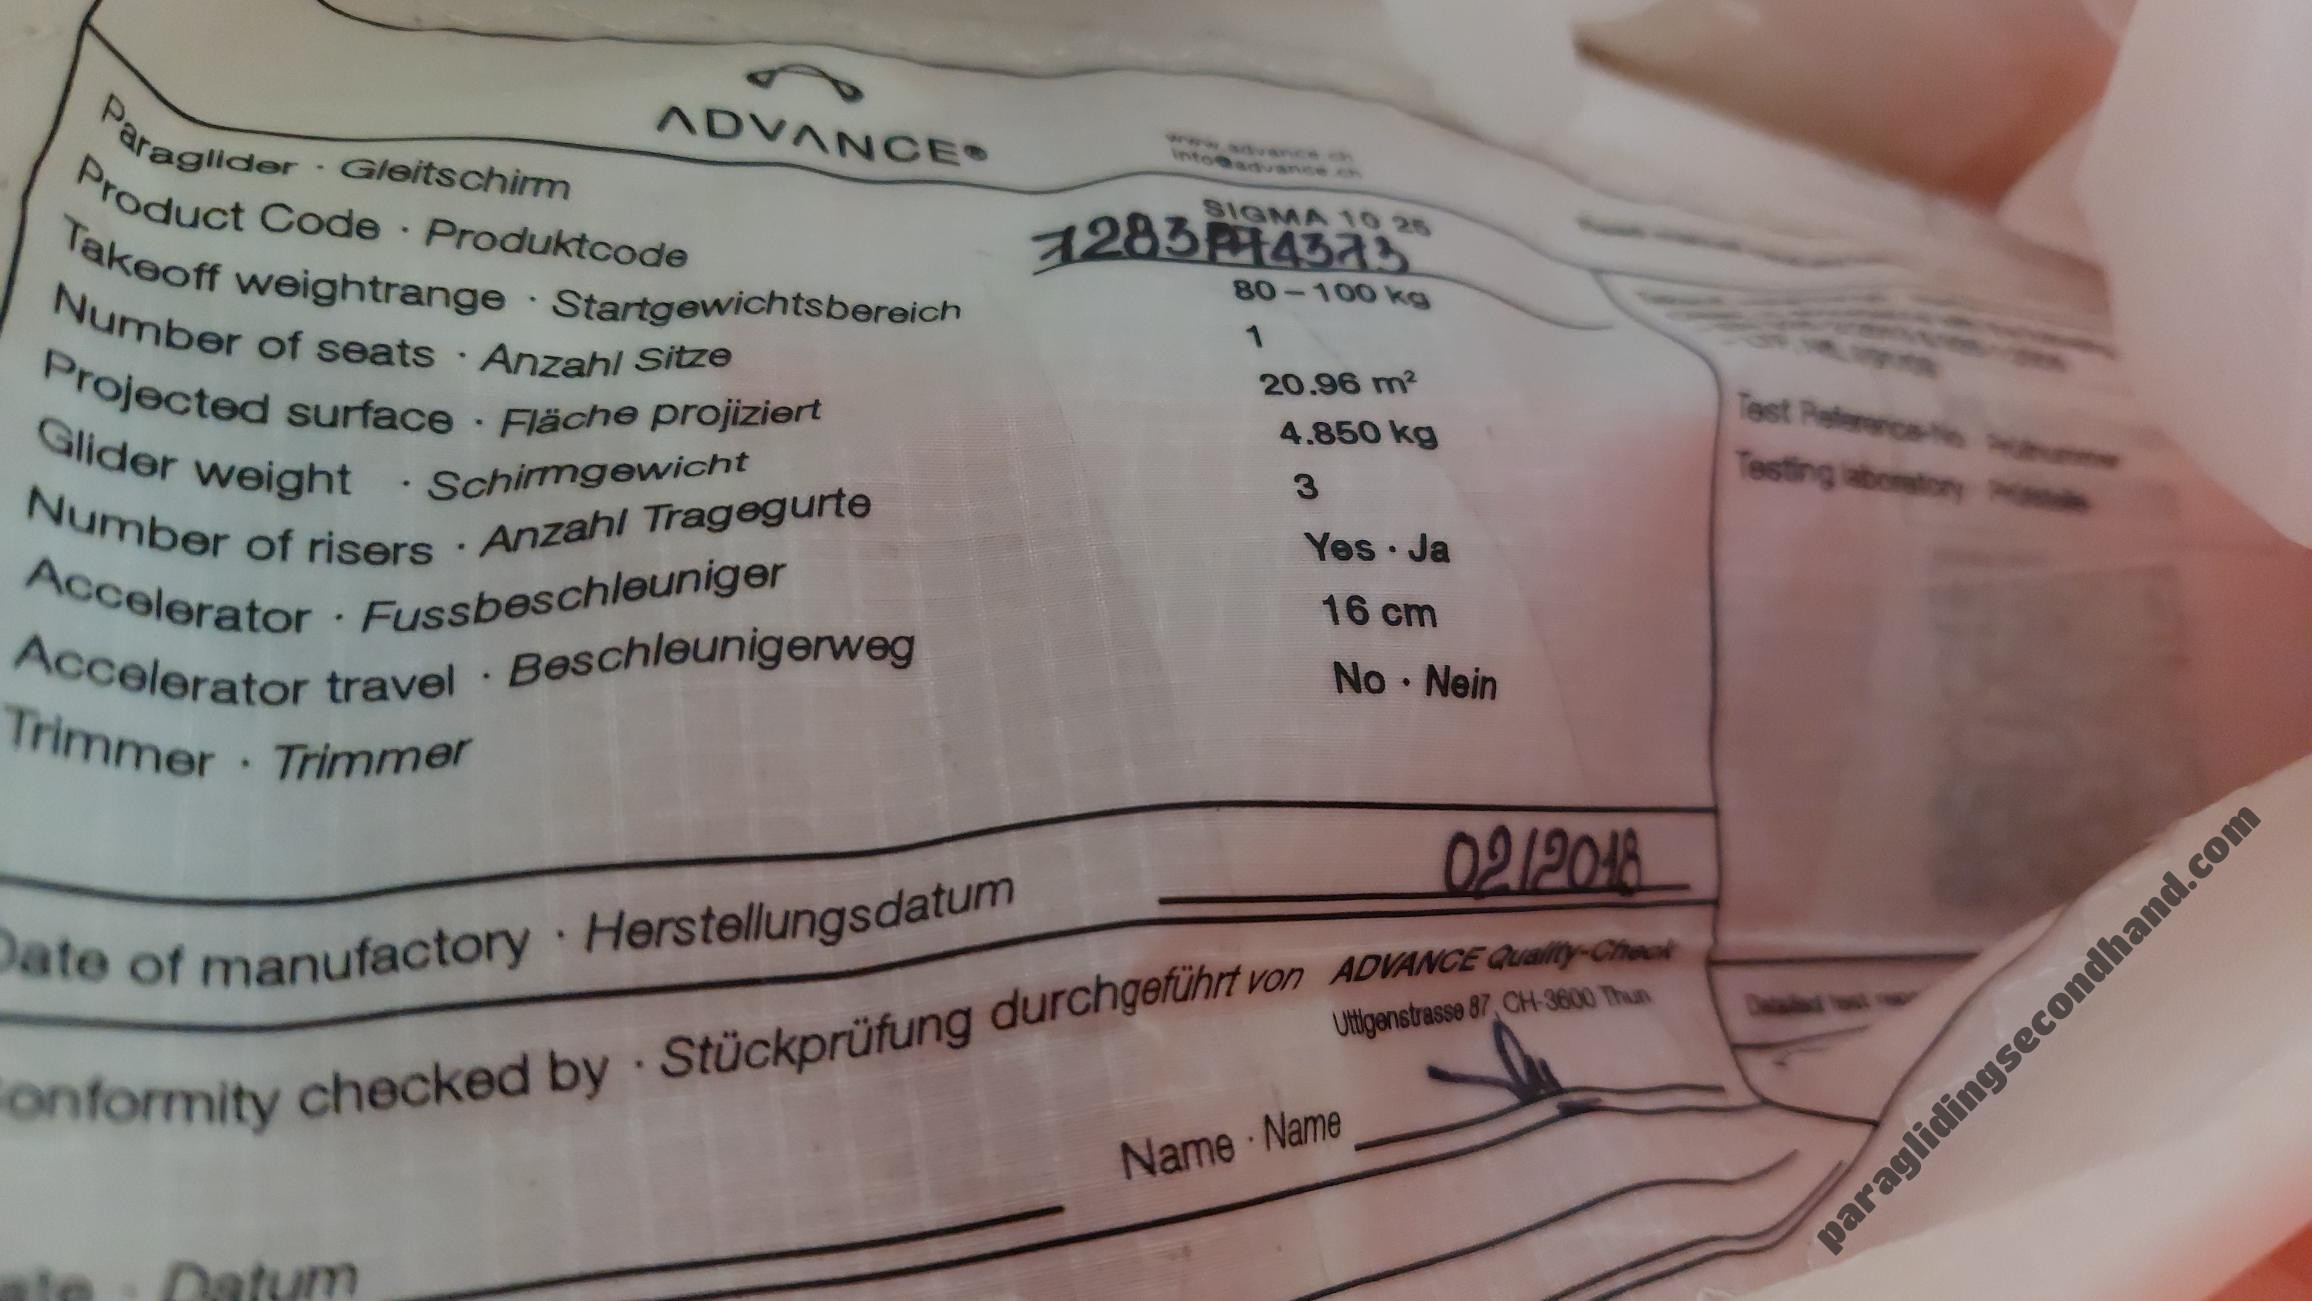 ADVANCE®
www.advance.ch
info@advance.ch
Paraglider · Gleitschirm SIGMA 10 25
Product Code · Produktcode
Takeoff weightrange · Startgewichtsbereich 80 – 100 kg
Number of seats · Anzahl Sitze 1
Projected surface · Fläche projiziert 20.96 m²
Glider weight · Schirmgewicht 4.850 kg
Number of risers · Anzahl Tragegurte 3
Accelerator · Fussbeschleuniger Yes · Ja
Accelerator travel · Beschleunigerweg 16 cm
Trimmer · Trimmer No · Nein
Date of manufactory · Herstellungsdatum 02/2018
onformity checked by · Stückprüfung durchgeführt von ADVANCE Quality-Check
Uttigenstrasse 87, CH-3600 Thun
Name · Name
ate · Datum
Test Reference-No. Prüfnummer
Testing laboratory Prüfstelle
paraglidingsecondhand.com